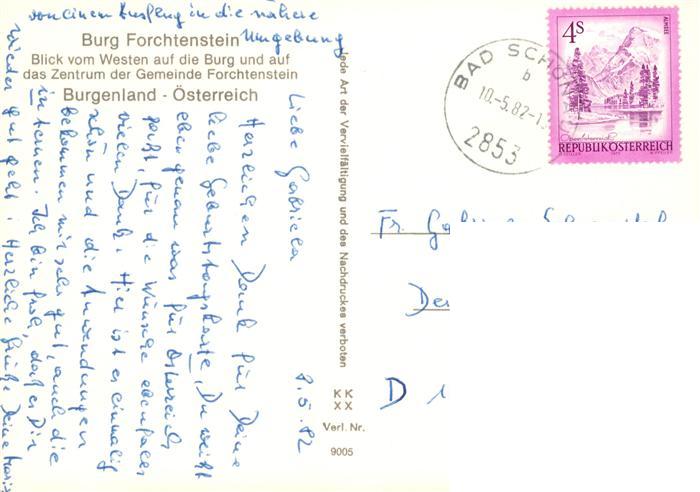 Burg Forchtenstein
Blick vom Westen auf die Burg und auf
das Zentrum der Gemeinde Forchtenstein
Burgenland - Österreich
Jede Art der Vervielfältigung und des Nachdruckes verboten
KK
XX
Verl. Nr.
9005
BAD SCHÖN
b
10.-5.82-1
2853
4S
ALMSEE
Oberösterreich
REPUBLIK ÖSTERREICH
8.5.82
Liebe Gabriela
Herzlichen Dank für Deine
liebe Geburtstagskarte, Du weißt
eben genau was für Österreich
paßt, für die Wünsche ebenfalls
vielen Dank. Hier ist es einmalig
schön und die Anwendungen
bekommen mir sehr gut, auch die
internen. Ich bin froh, daß es Dir
wieder gut geht. Herzliche Grüße Deine
von einem Ausflug in die nähere
Umgebung
Fr.
D 1